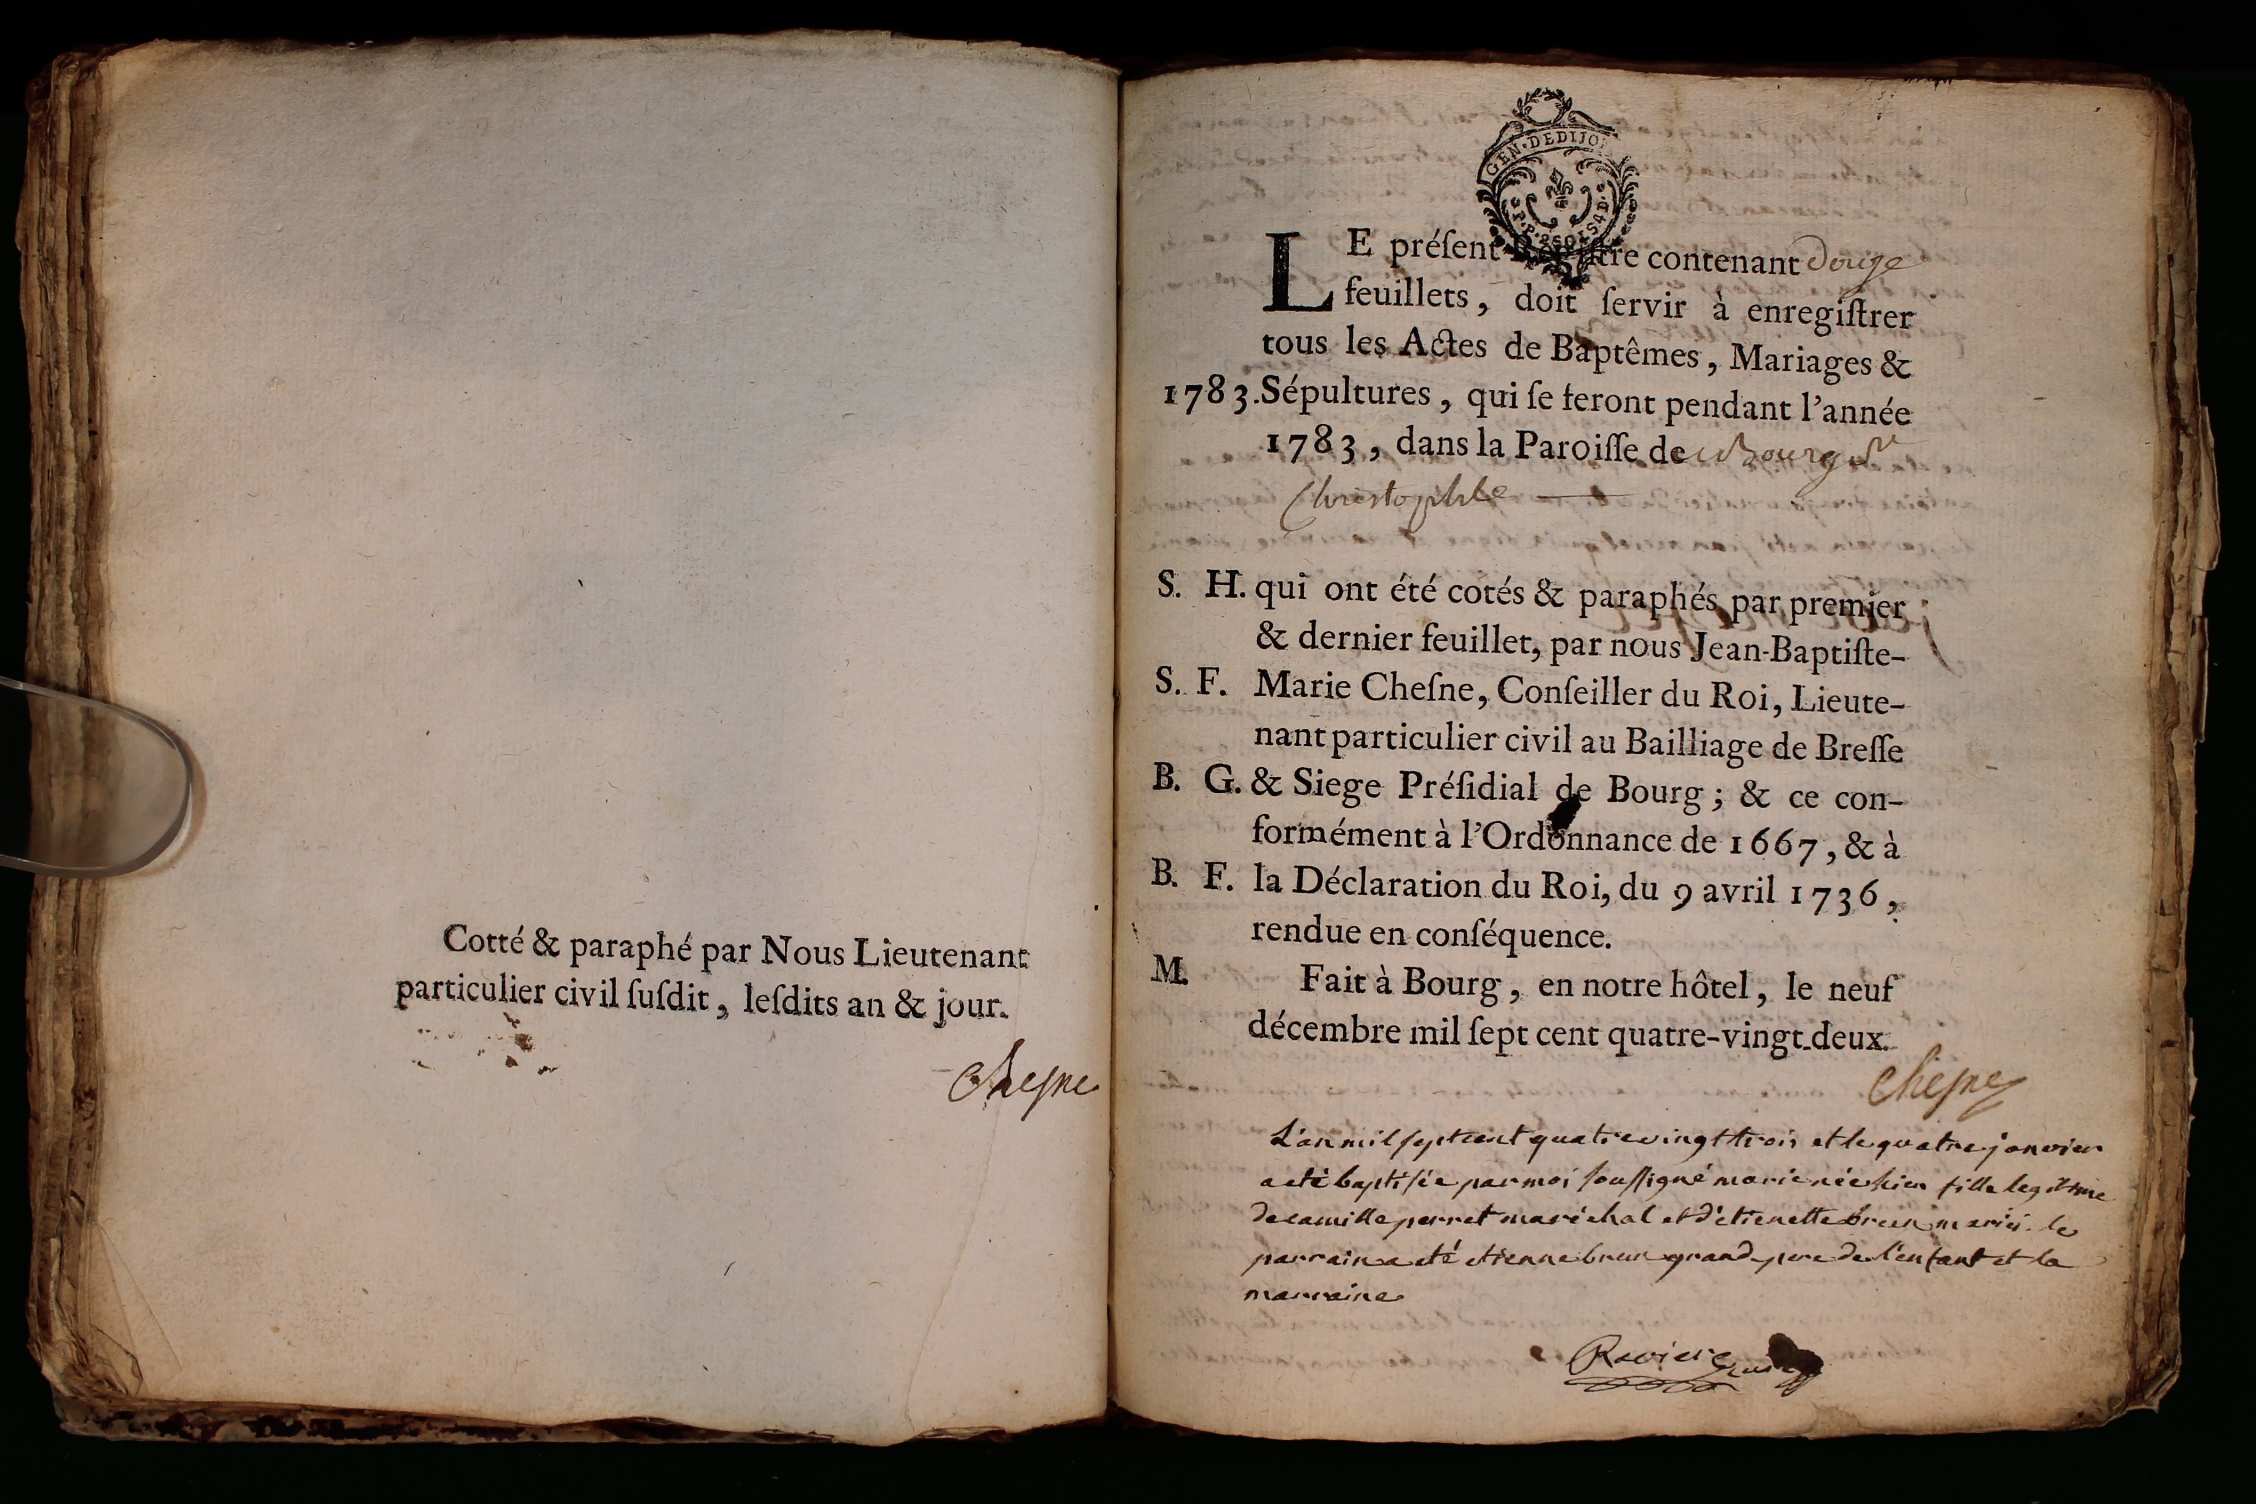 Cotté & paraphé par Nous Lieutenant
particulier civil ſuſdit, leſdits an & jour.
Cheſne
GEN. DE DIJON
LE préſent Regiſtre contenant douze
feuillets, doit ſervir à enregiſtrer
tous les Actes de Baptêmes, Mariages &
1783. Sépultures, qui ſe feront pendant l'année
1783, dans la Paroiſſe de Bourg St
Christophle
S. H. qui ont été cotés & paraphés par premier
& dernier feuillet, par nous Jean-Baptiſte-
S. F. Marie Cheſne, Conſeiller du Roi, Lieute-
nant particulier civil au Bailliage de Breſſe
B. G. & Siege Préſidial de Bourg; & ce con-
formément à l'Ordonnance de 1667, & à
B. F. la Déclaration du Roi, du 9 avril 1736,
rendue en conſéquence.
M. Fait à Bourg, en notre hôtel, le neuf
décembre mil ſept cent quatre-vingt-deux.
Cheſne
L'an mil ſept cent quatre vingt trois et le quatre janvier
a eté baptiſée par moi ſouſſigné marie née hier fille legitime
de camille perret maréchal et d'étienette brun mariés. le
parrain a eté etienne brun grand pere de l'enfant et la
marraine
Raviere curé